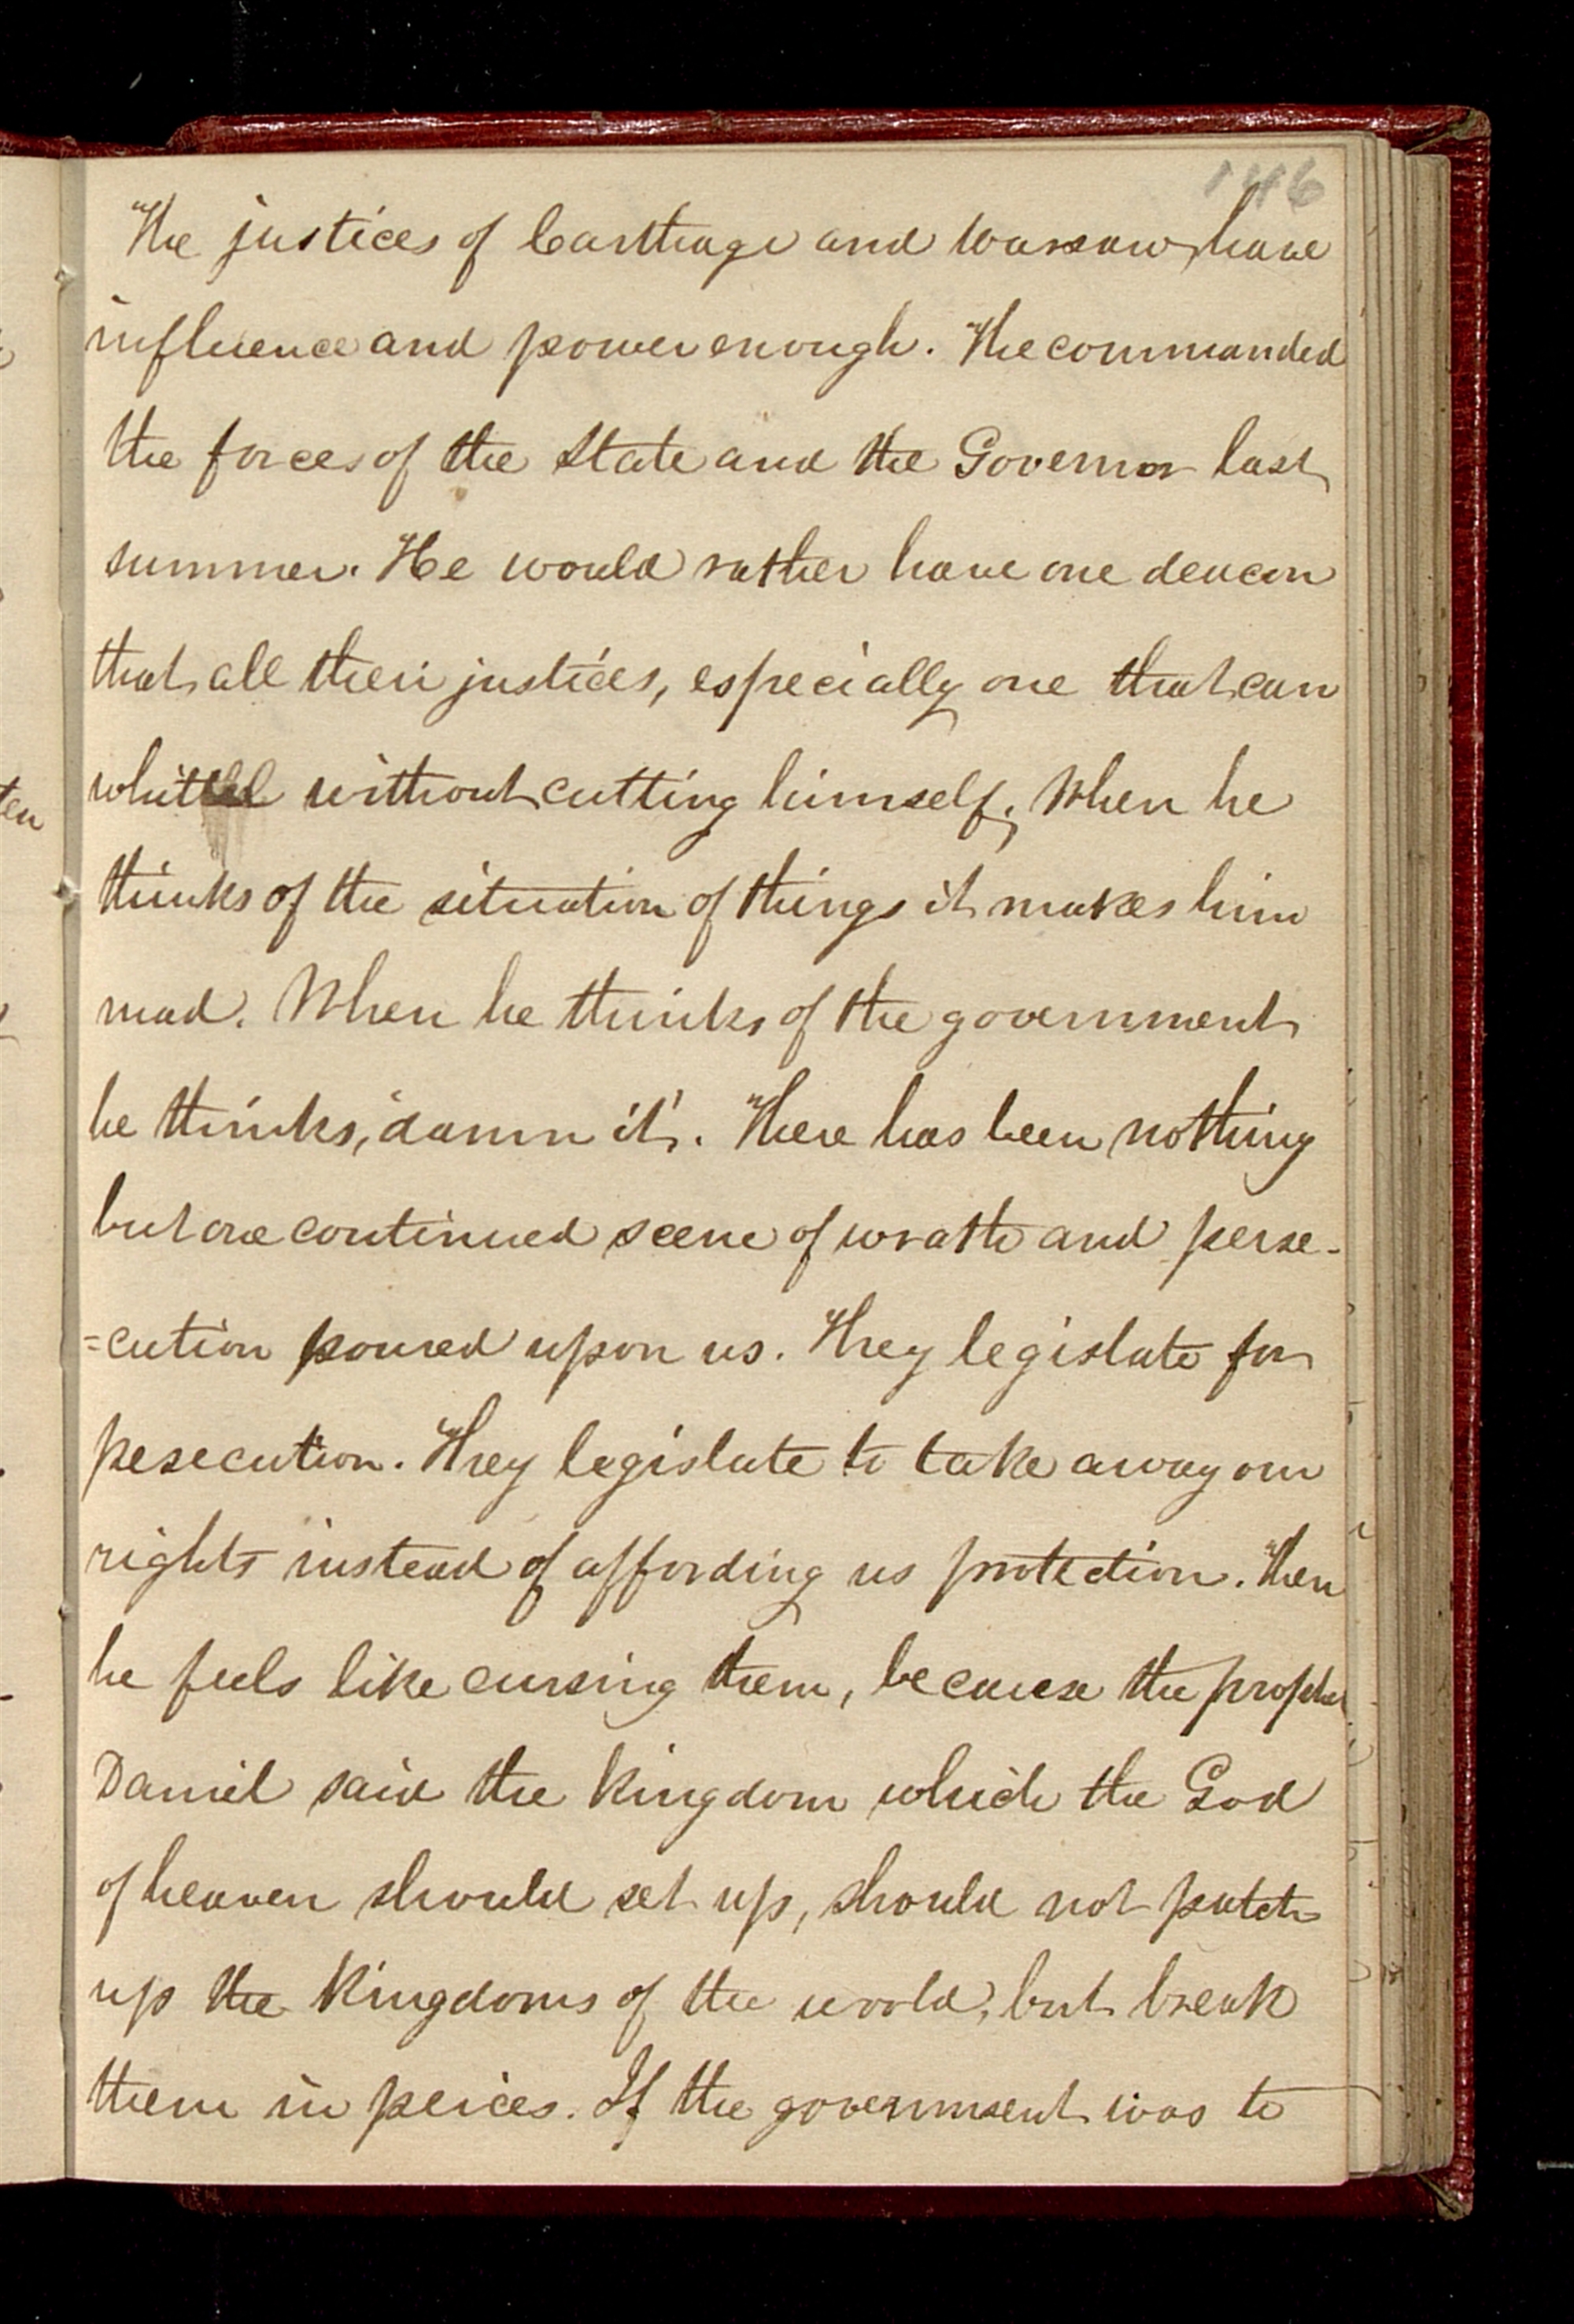 146
The justices of Carthage and Warsaw have
influence and power enough. The commanded
the forces of the State and the Governor last
summer. He would rather have one deacon
that all their justices, especially one that can
without cutting himself. When he
thinks of the situation of things it makes him
mad. When he thinks of the government
he thinks, 'damn it'. There has been nothing
but one continued scene of wrath and perse-
=cution poured upon us. They legislate for
pesecution. They legislate to take away our
rights instead of affording us protection. Then
he feels like cursing them, because the prophet
Daniel said the kingdom which the God
of heaven should set up, should not patch
up the kingdoms of the world, but break
them in peices. If the government was to
ten